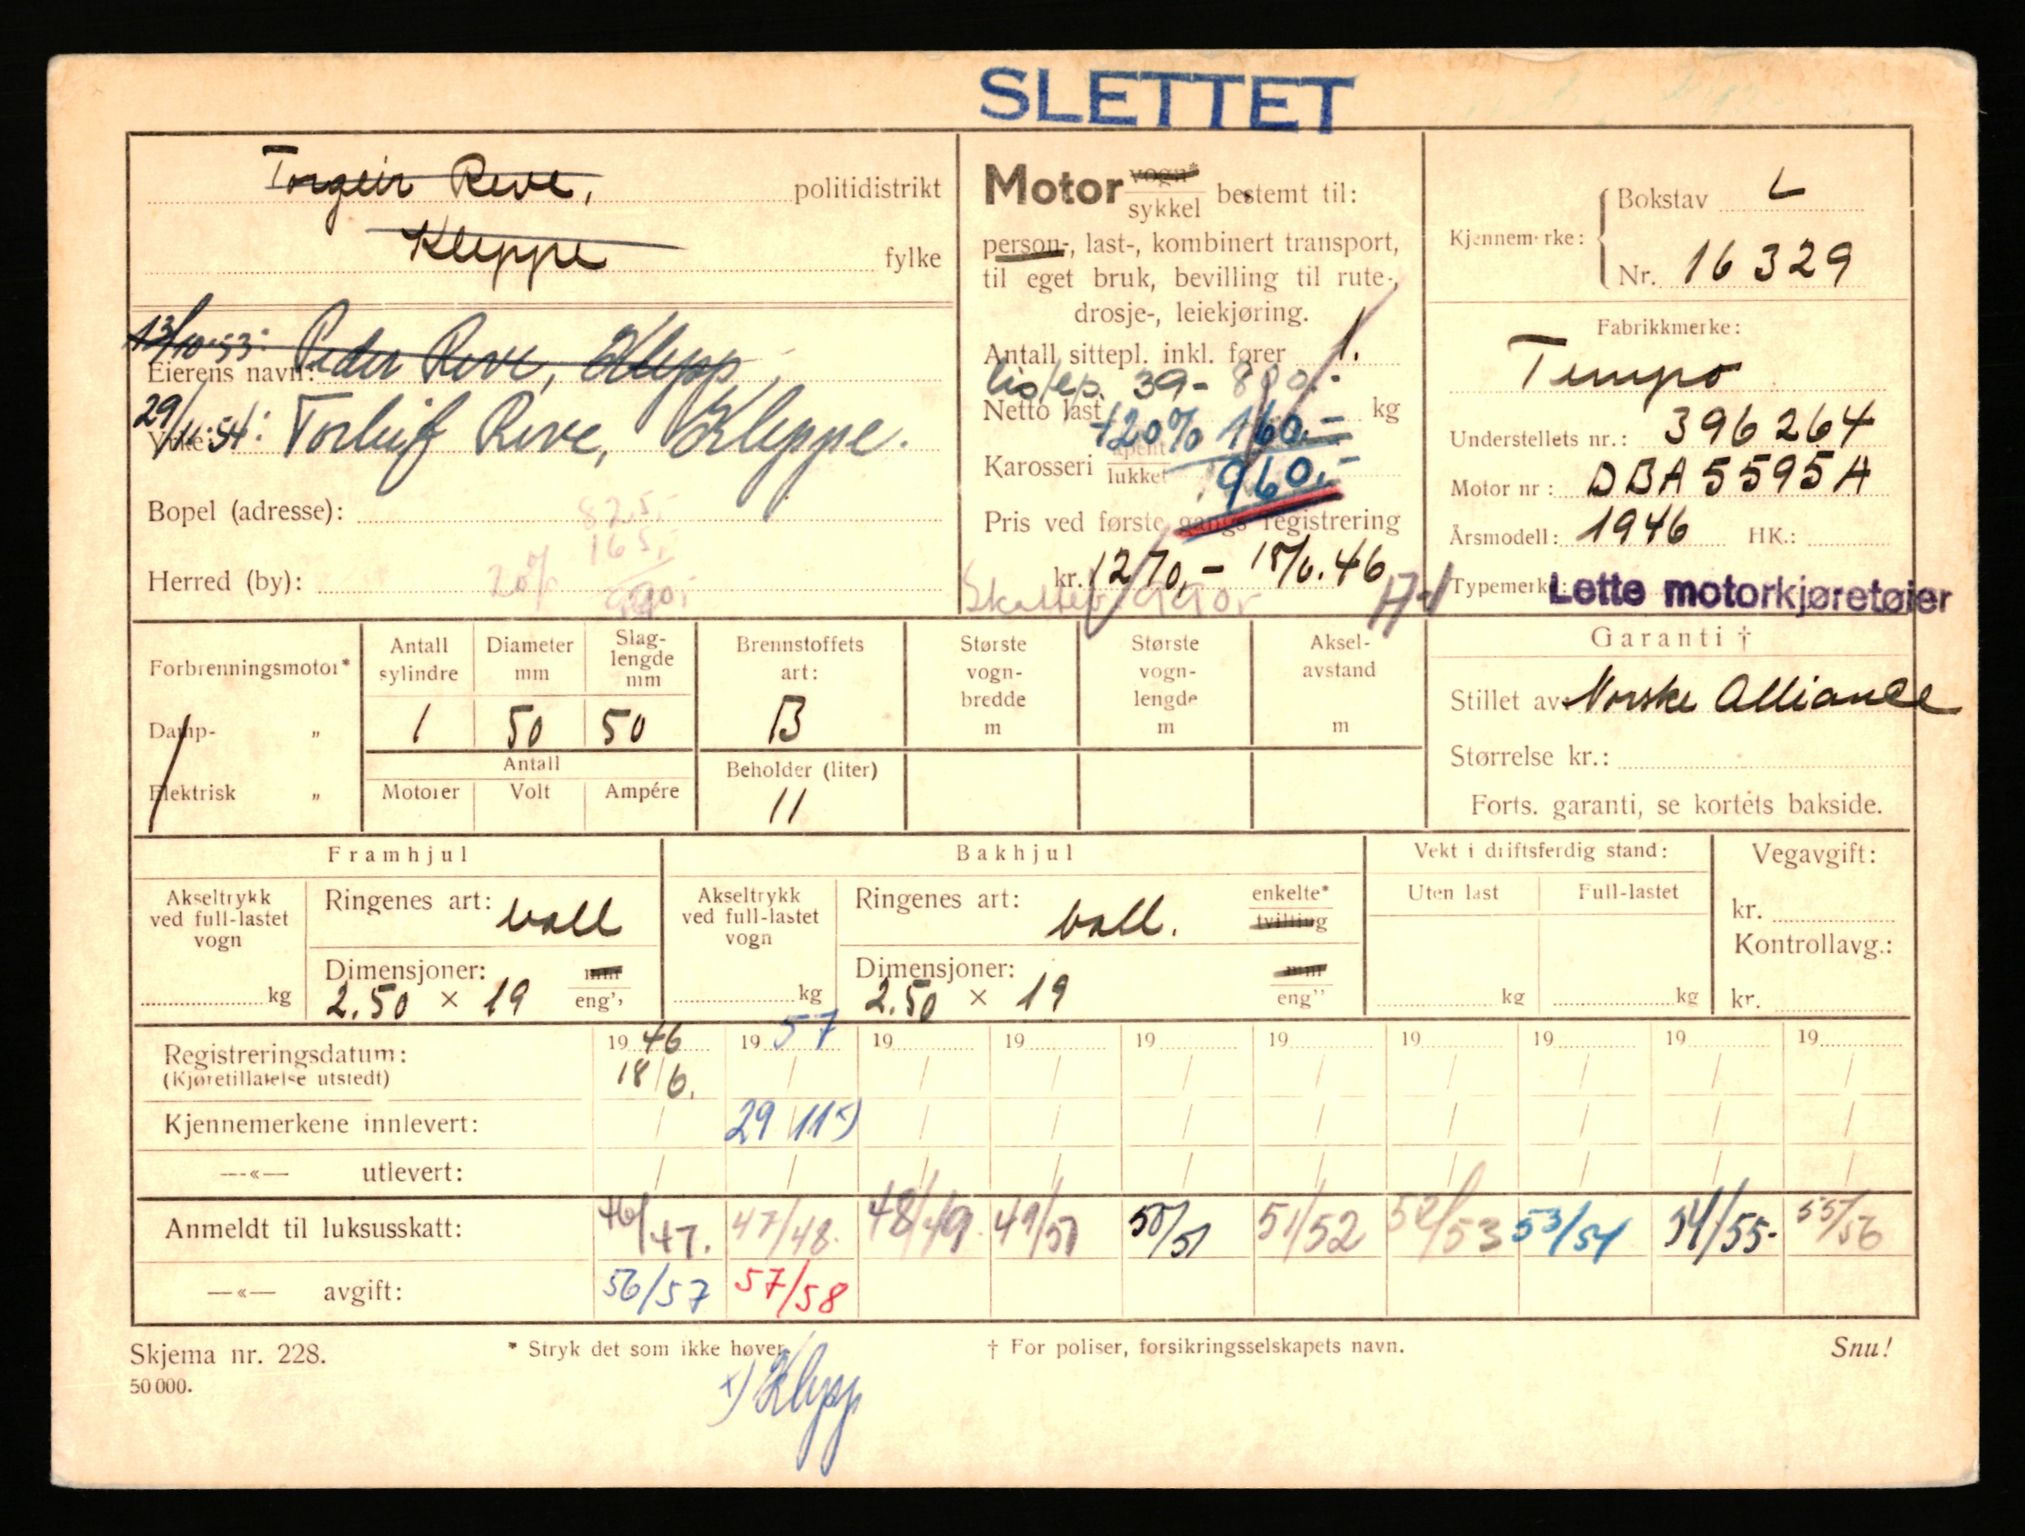 SLETTET
Torgeir Reve, politidistrikt
Kleppe fylke
13/10-53: Peder Reve, Klepp
Eierens navn:
29/11-54: Torleif Reve, Kleppe.
Yrke:
Bopel (adresse): 825,-
165,-
Herred (by): 20% 990,-
Motor vogn* sykkel bestemt til:
person-, last-, kombinert transport,
til eget bruk, bevilling til rute-,
drosje-, leiekjøring.
Antall sittepl. inkl. fører 1.
39- 800,-
Netto last +20% 160,- kg
Karosseri åpent lukket 960,-
Pris ved første gangs registrering
kr. 1270,- 18/6.46
990,-
Kjennemerke: Bokstav L
Nr. 16329
Fabrikkmerke:
Tempo
Understellets nr.: 396264
Motor nr: DBA 5595A
Årsmodell: 1946 HK.:
Typemerke: Lette motorkjøretøier
Garanti †
Stillet av Norske Alliance
Størrelse kr.:
Forts. garanti, se kortets bakside.
Forbrenningsmotor*
Damp- „
Elektrisk „
Antall sylindre Diameter mm Slag-lengde mm
1 50 50
Antall
Motorer Volt Ampére
Brennstoffets art:
B
Beholder (liter)
11
Største vogn-bredde m
Største vogn-lengde m
Aksel-avstand m
Framhjul
Akseltrykk ved full-lastet vogn kg
Ringenes art: ball
Dimensjoner: mm
2.50 × 19 eng''
Bakhjul
Akseltrykk ved full-lastet vogn kg
Ringenes art: ball. enkelte* tvilling
Dimensjoner: mm
2.50 × 19 eng''
Vekt i driftsferdig stand:
Uten last Full-lastet
kg kg
Vegavgift:
kr.
Kontrollavg.:
kr.
Registreringsdatum: 1946 1957 19 19 19 19 19 19 19 19
(Kjøretillatelse utstedt) 18/6.
Kjennemerkene innlevert: 29/11 x)
—«— utlevert:
Anmeldt til luksusskatt: 46/47. 47/48. 48/49. 49/50 50/51 51/52 52/53 53/54 54/55- 55/56
—«— avgift: 56/57 57/58
Skjema nr. 228. * Stryk det som ikke høver. † For poliser, forsikringsselskapets navn. Snu!
50 000.
x) Klepp